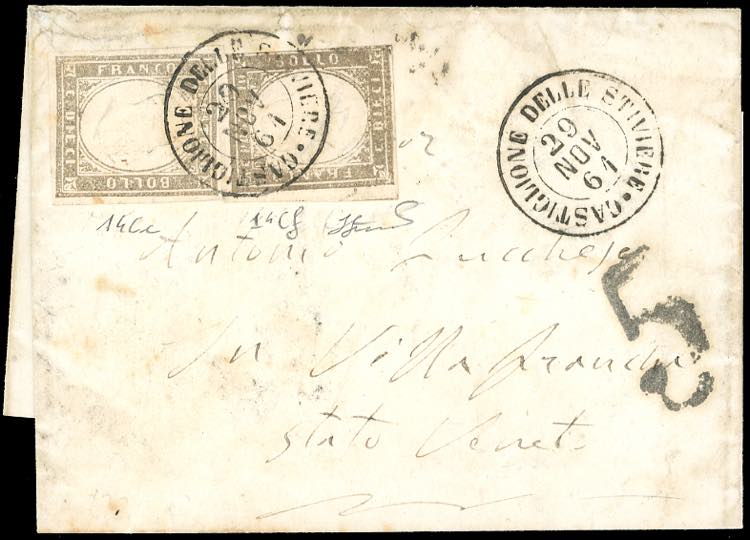 FRANCO
BOLLO
BOLLO
FRA
CASTIGLIONE DELLE STIVIERE
29
NOV
61
CASTIGLIONE DELLE STIVIERE
29
NOV
61
14Cc
14Cf
Antonio
In Villafranca
Stato Veneto
5